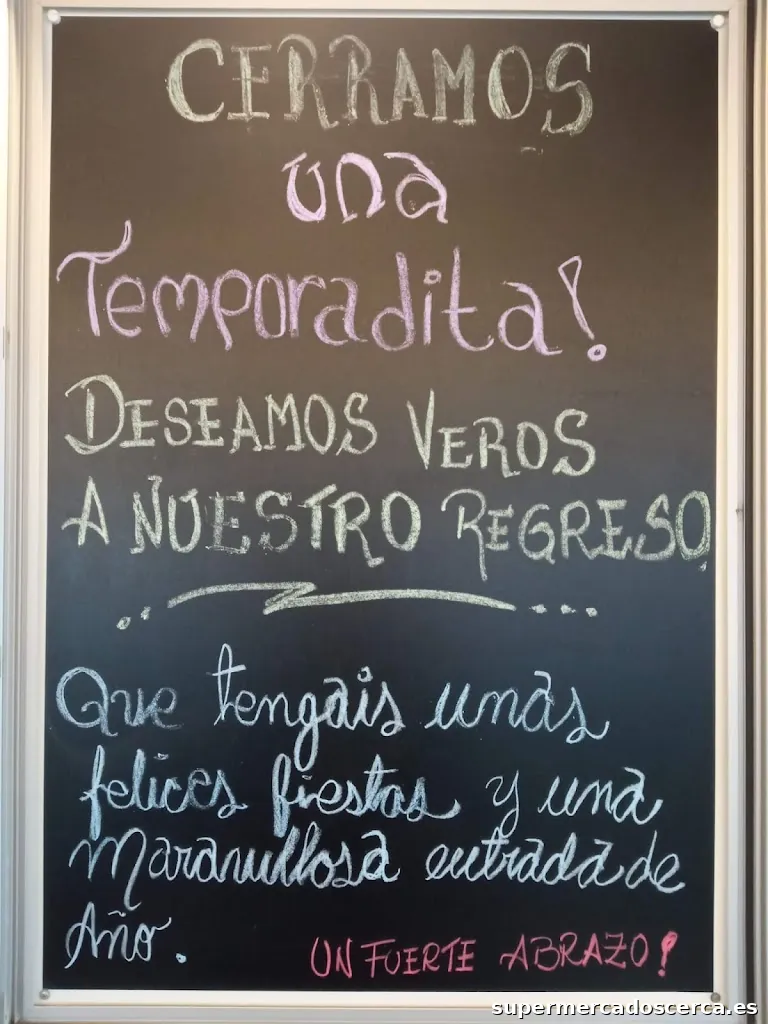 CERRAMOS
una
Temporadita!
DESEAMOS VEROS
A NUESTRO REGRESO
Que tengais unas
felices fiestas y una
maravillosa entrada de
Año.
UN FUERTE ABRAZO!
supermercadoscerca.es